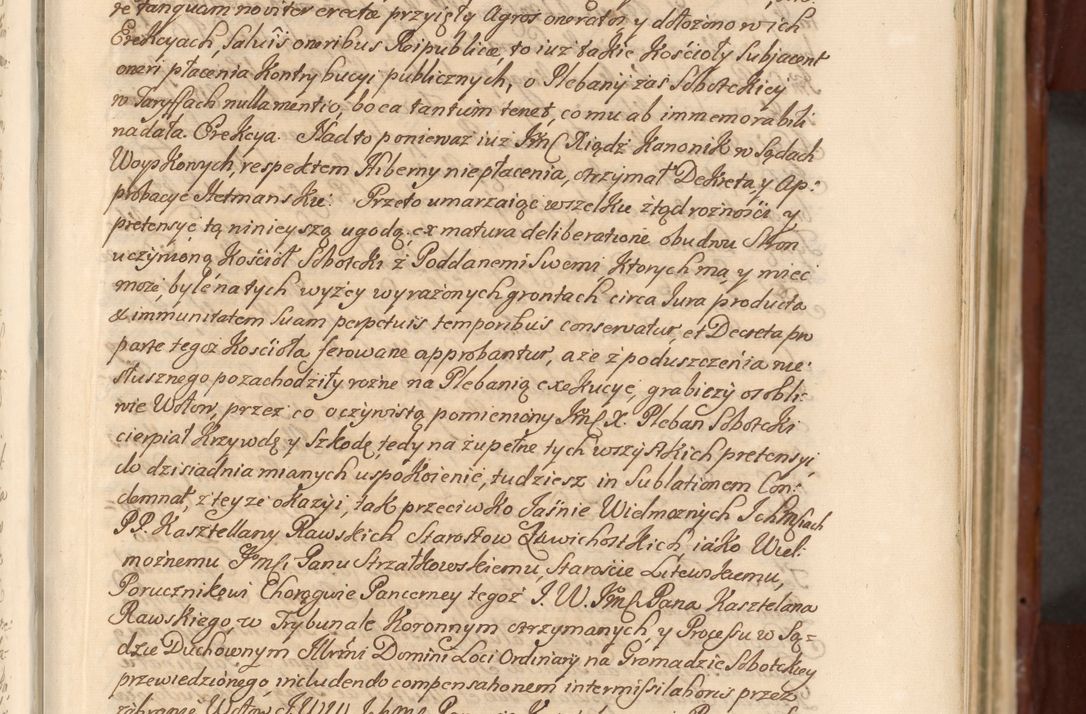 re tanquam noviter erectæ przyięty Agros onerator y dołozono w ich
Erekcyach, Salvis oneribus Reipublicæ, to iuz takie Kościoły Subjacent
oneri płacenia Kontrybucyi publicznych, o Plebanij zaś Sobotckiey
w Taryffach nulla mentio, bo ea tantum tenet, co mu ab immemorabili
nadała Erekcya. Nadto poniewaz iuz Jmć Xiądz Kanonik w Sądach
Woyskowych, respektem Hiberny niepłacenia, otrzymał Dekreta y Ap=
probacye Hetmanskie. Przeto umarzaiąc wszelkie ztąd roznosci y
pretensye tą ninieyszą ugodą, ex matura deliberatione obudwu Stron
uczynioną Kościół Sobotcki z Poddanemi Swemi, Ktorych ma y mieć
może, byle na tych wyzey wyrażonych grontach circa Iura producta
& immunitatem Suam perpetuis temporibus conservatur, et Decreta pro
parte tegoz Kościoła ferowane approbantur, a ze z poduszczenia nie=
słusznego pozachodziły rozne na Plebanią exekucye, grabiezy osobli=
wie Wołow, przez co oczywistą pomieniony Jmć X. Pleban Sobotcki
cierpiał Krzywdę y Szkodę, tedy na zupełne tych wszystkich pretensyi,
do dzisiadnia mianych uspokoienie, tudziesz in Sublationem Con=
demnat, z teyze okazyi, tak przeciwko Jaśnie Wielmoznych Ichmściach
PP. Kasztellany Rawskich Starostow Zawichostkich, iako Wiel=
możnemu Jmći Panu Strzałkowskiemu, Staroście Litewskiemu,
Porucznikowi Chorągwie Pancerney tegoż J. W. Jmći Pana Kasztelana
Rawskiego, w Trybunale Koronnym otrzymanych, y Procesu w Są=
dzie Duchownym Illrmi Domini Loci Ordinarÿ na Gromadzie Sobotckiey
przewiedzionego, includendo compensationem intermissi laboris przez